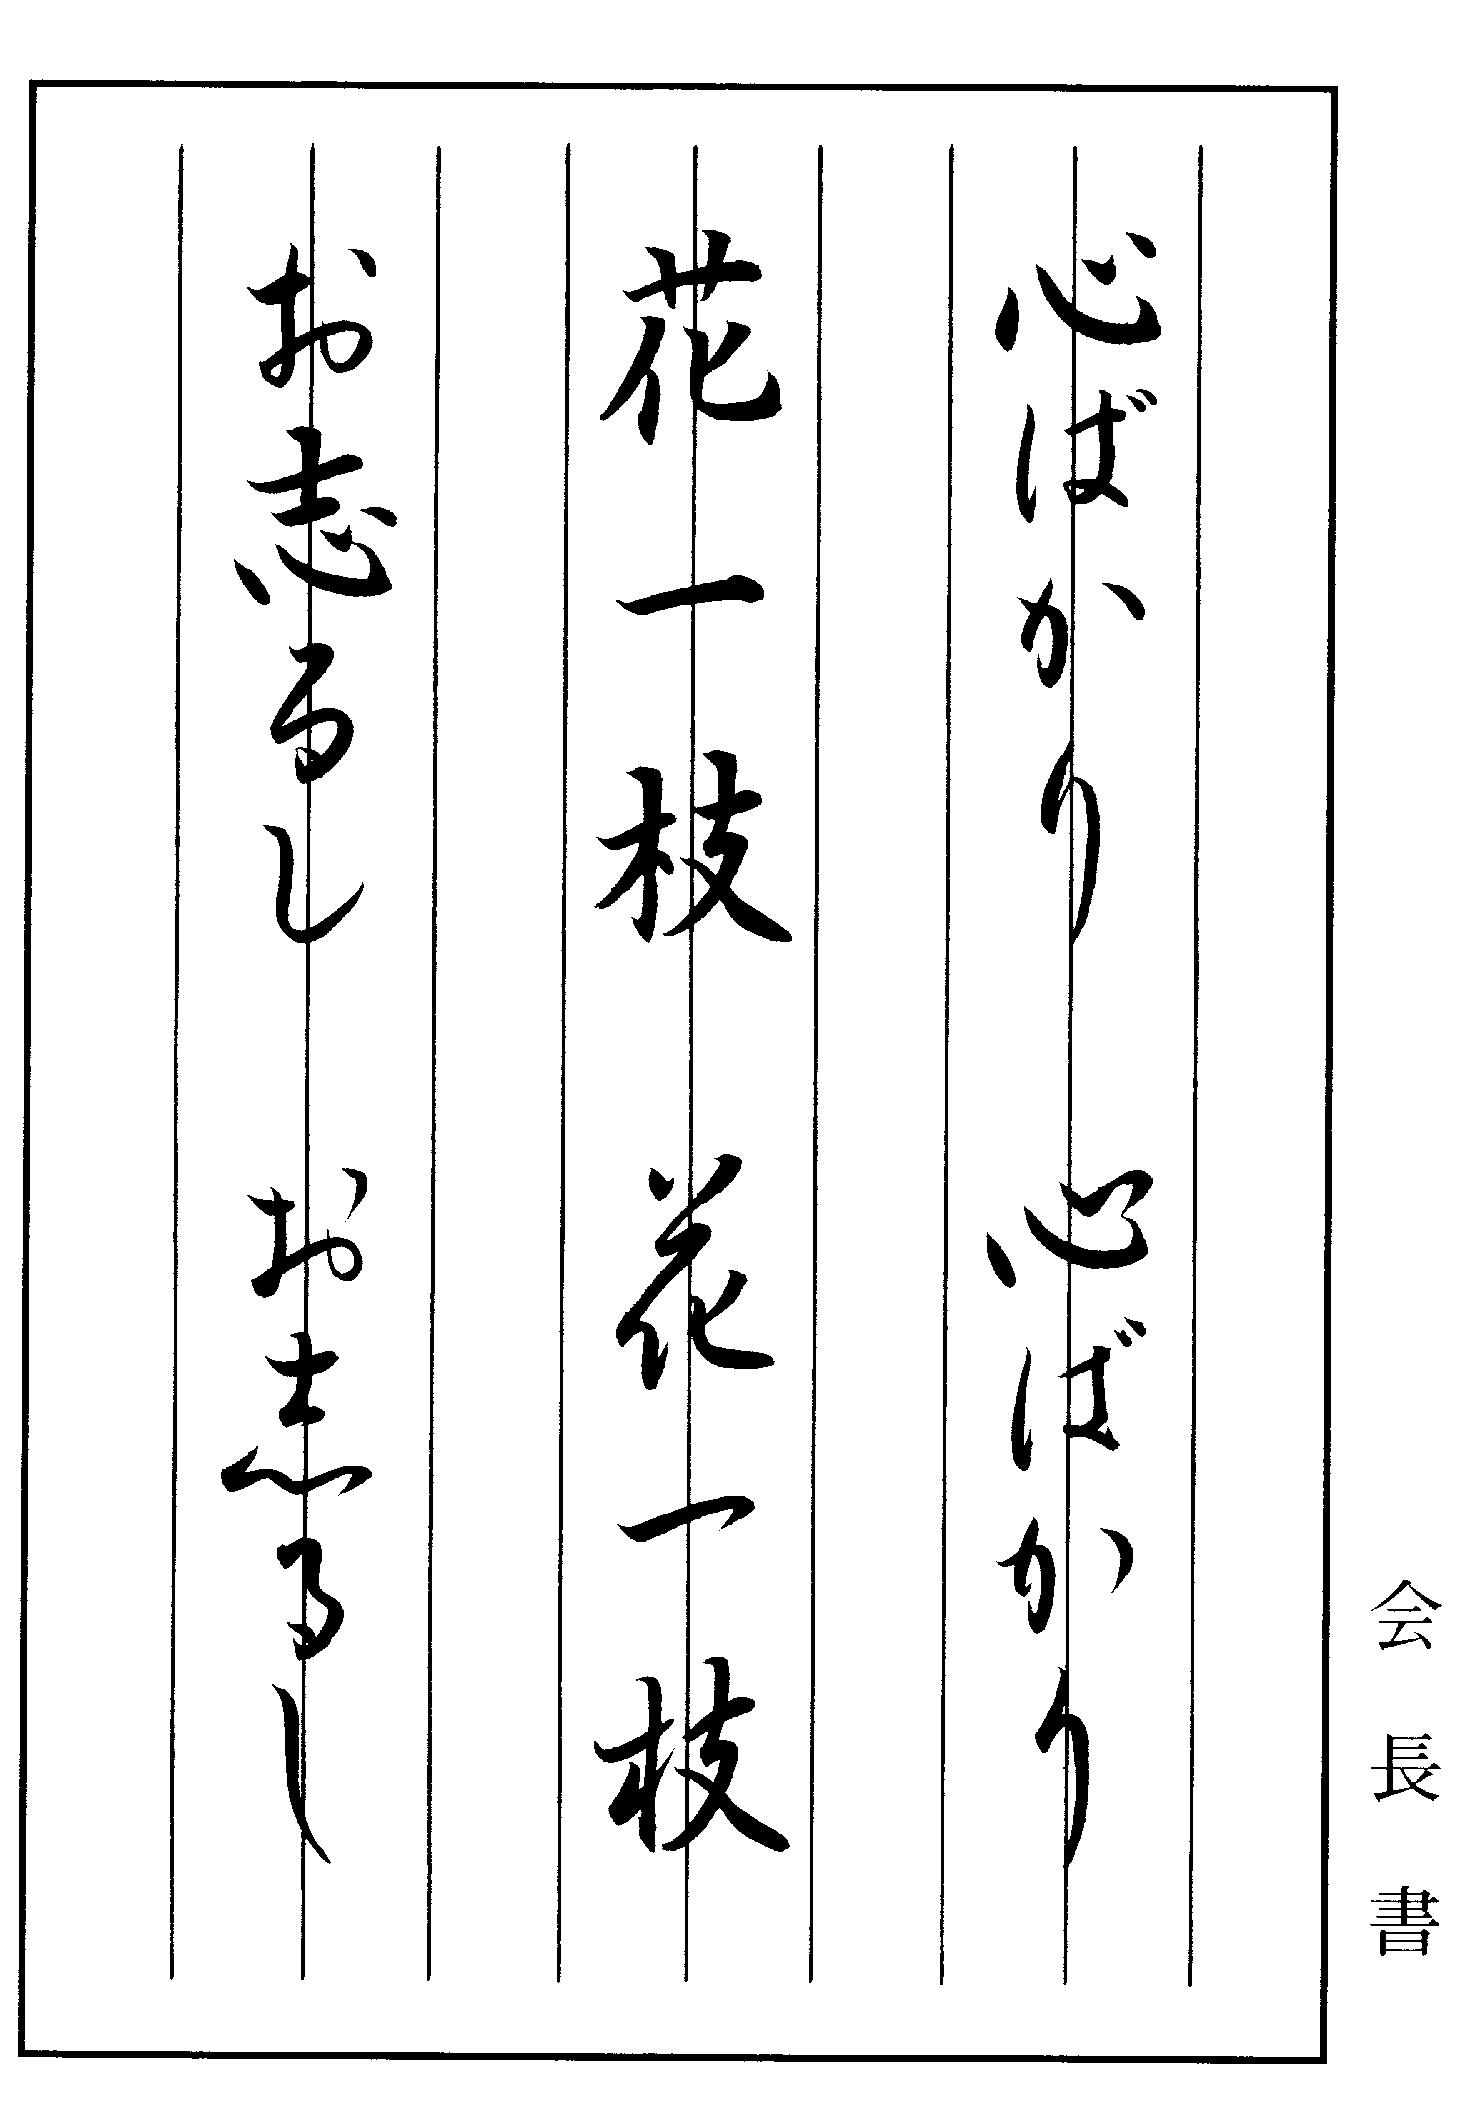 心ばかり 心ばかり
花一枝 花一枝
お志るし お志るし
会長書